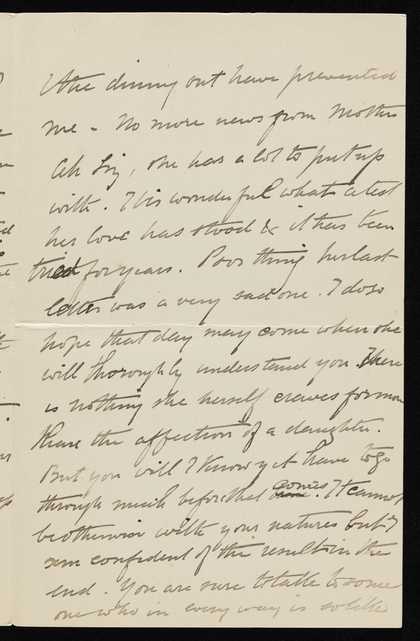 & the dining out have prevented
me - No more news from Mother
Ah Liz, she has a lot to put up
with. It is wonderful what a test
her love has stood & it has been
tried for years. Poor thing her last
letter was a very sad one. I do so
hope that day may come when she
will thoroughly understand you. There
is nothing she herself craves for more
than the affection of a daughter.
But you will I know yet have to go
through much before that comes. It cannot
be otherwise with your natures but I
am confident of the result in the
end. You are sure to take to some
one who in every way is so